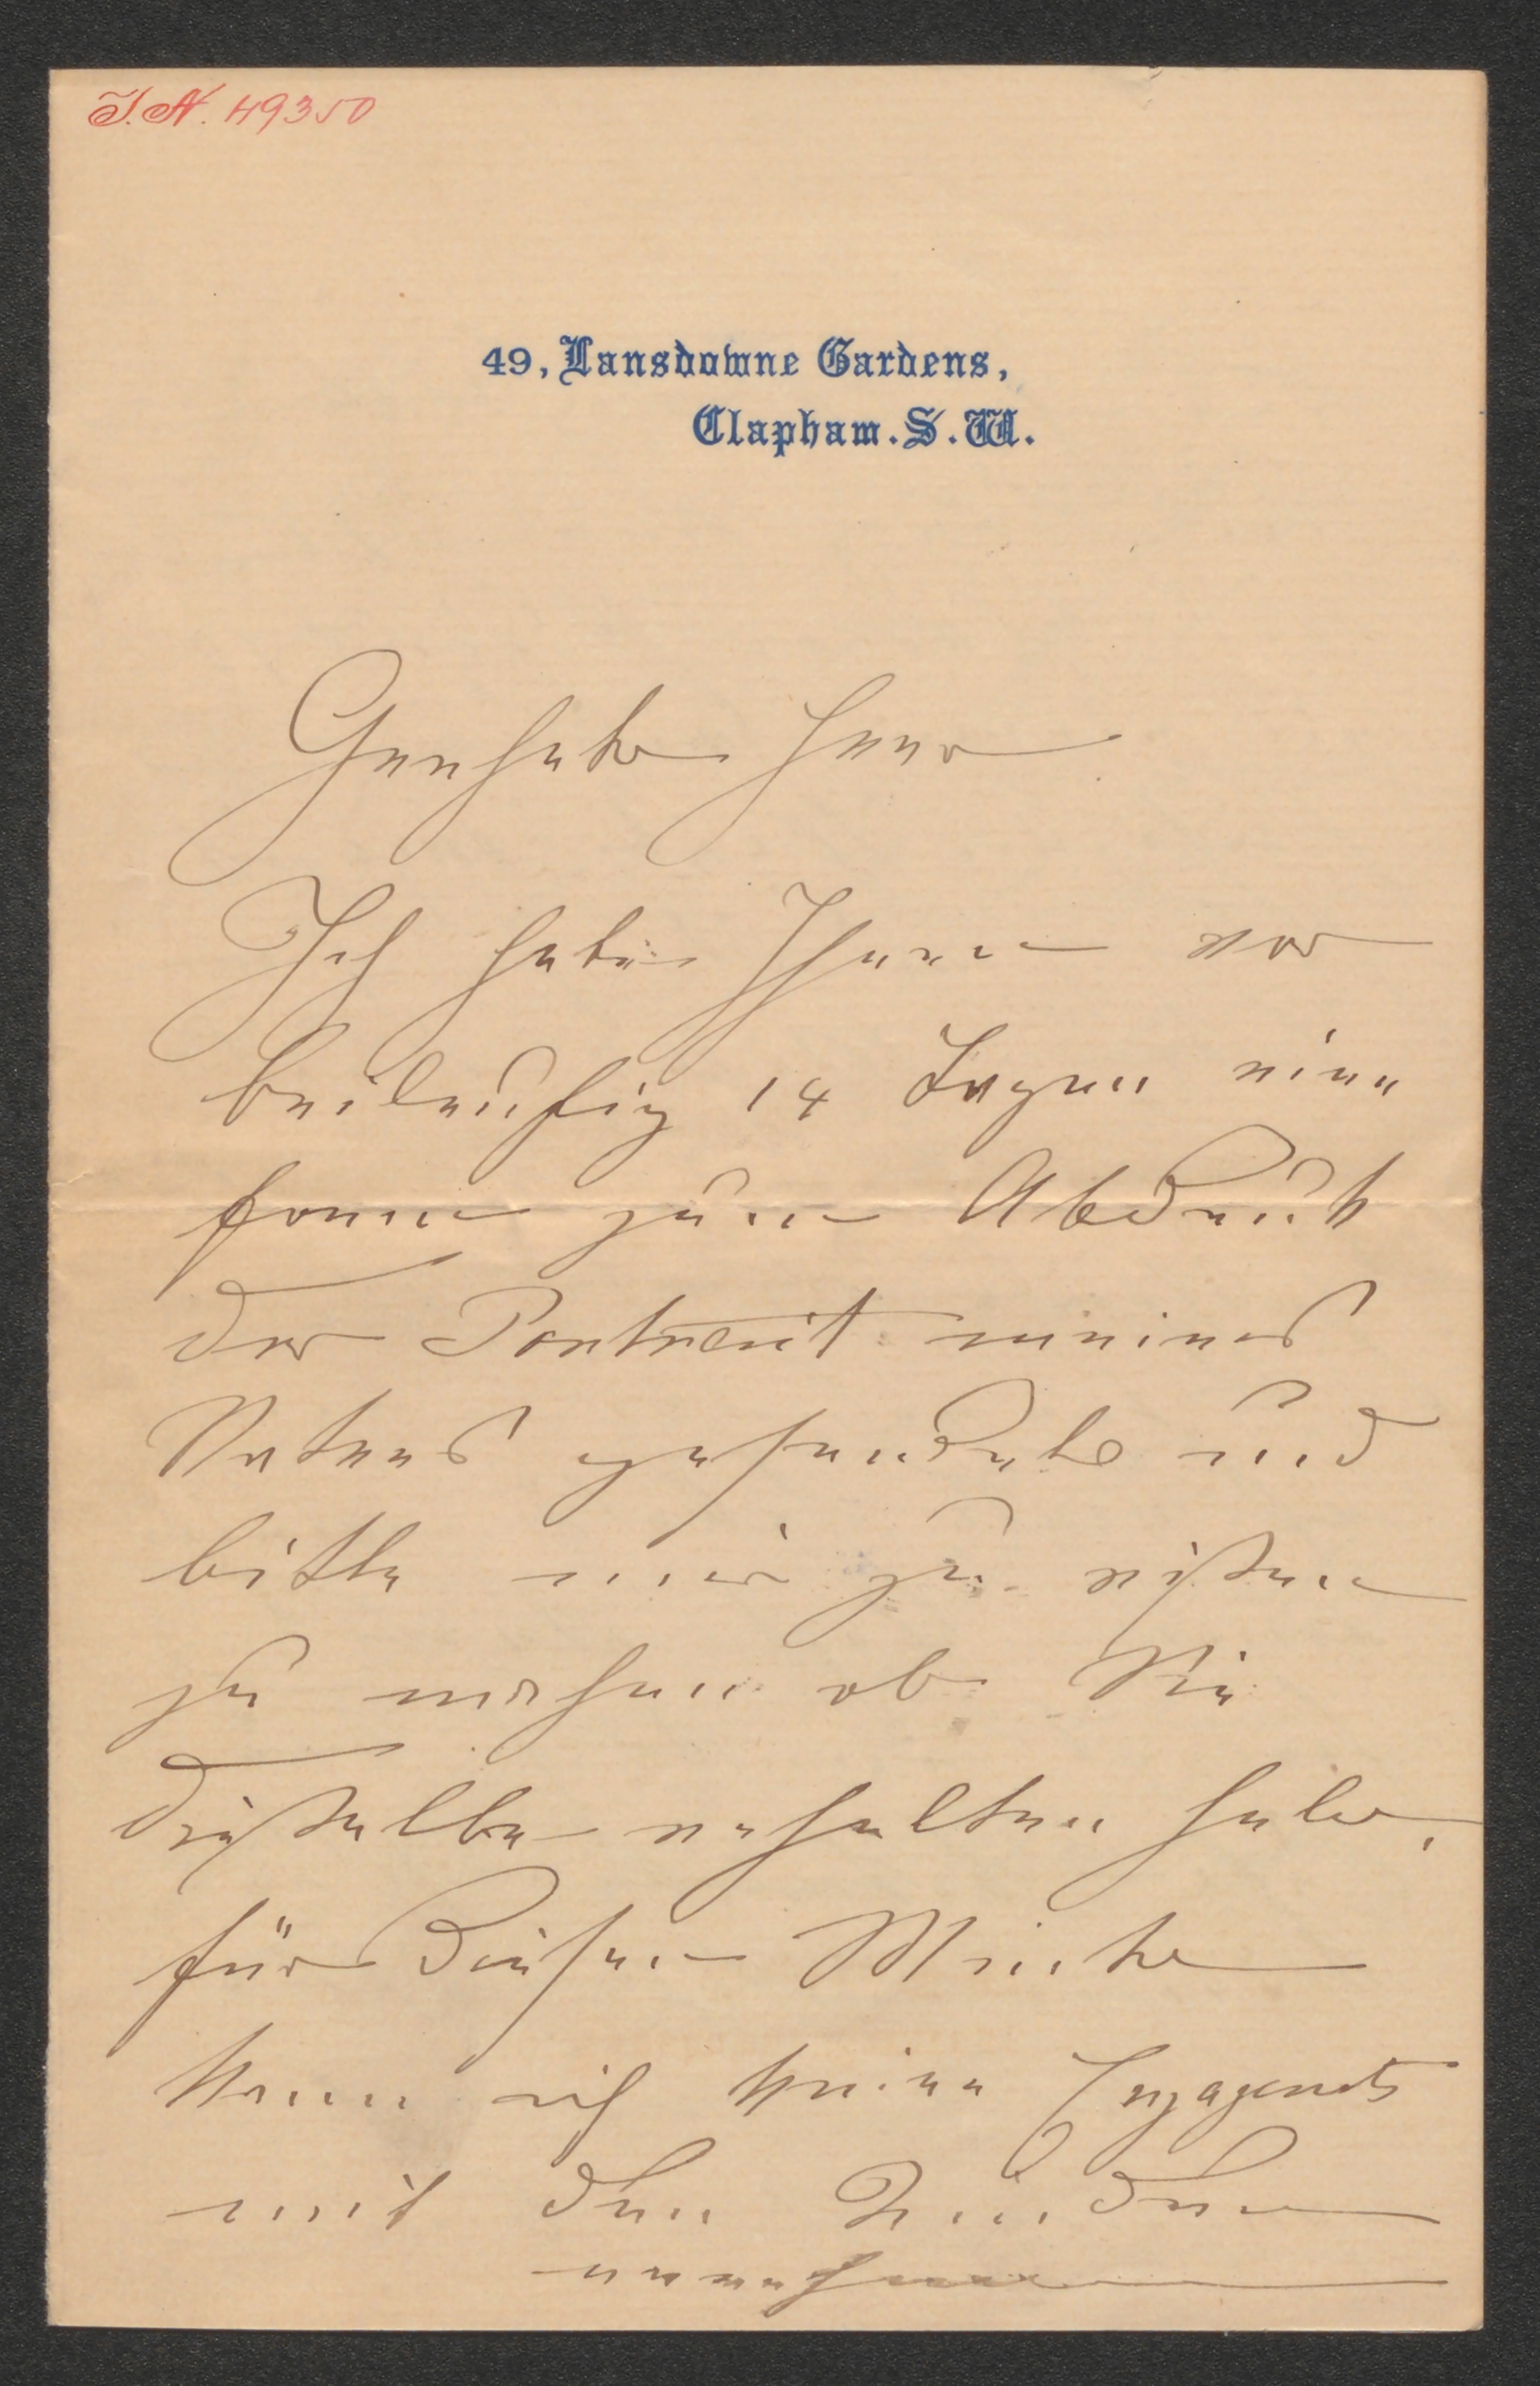 I.N. 49350
49, Lansdowne Gardens,
Clapham. S. W.
Geehrter Herr
Ich habe Ihnen vor
beiläufig 14 Tagen eine
Form zum Abdruck
der Portrait meines
Vaters gesendet und
bitte mir zu wissen
zu machen ob Sie
dieselbe erhalten haben,
für diesen Winter
kann ich keine Engagements
mit den Kindern
annehmen